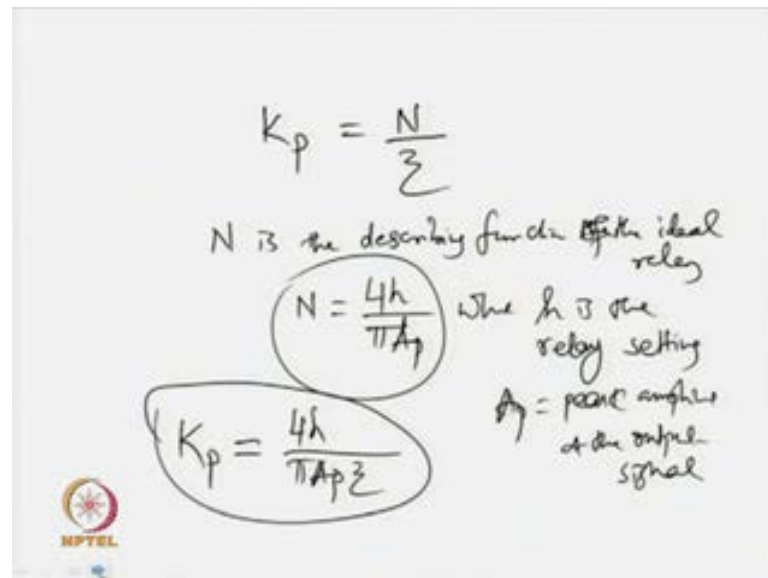 Kp = N/ξ
N is the describing function of the ideal
relay
N = 4h/πAp where h is the
relay setting
Ap = peak amplitude
of the output
signal
Kp = 4h/πApξ
NPTEL